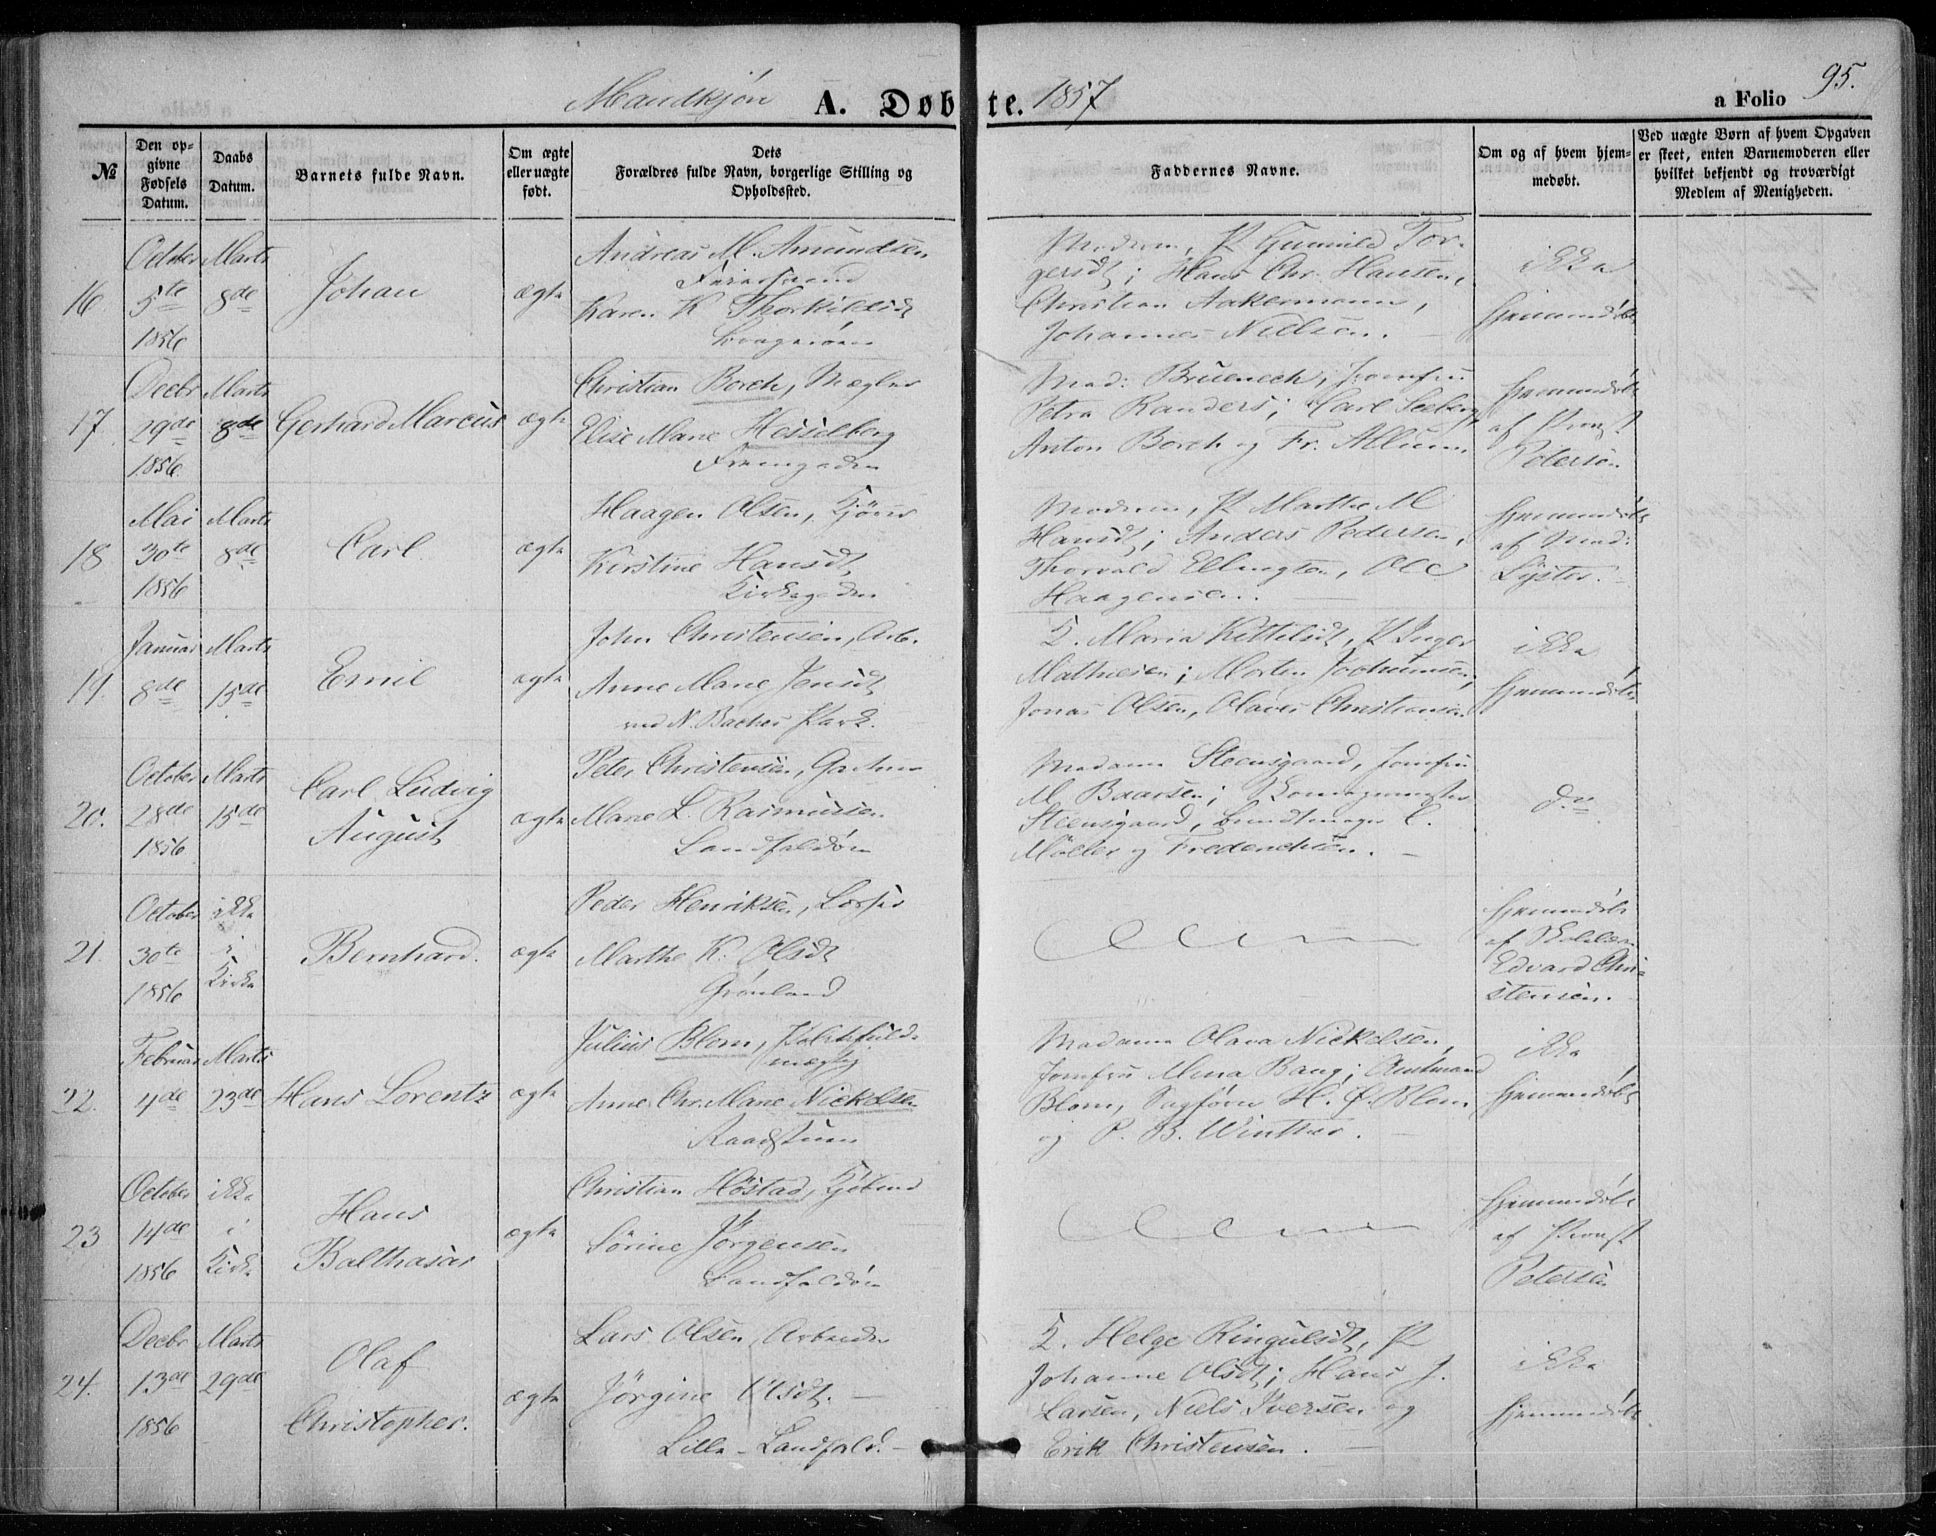 Mandkjön A. Døbte. 1857 a Folio 95.
№
Den opgivne Fødsels Datum.
Daabs Datum.
Barnets fulde Navn.
Om ægte eller uægte født.
Dets Forældres fulde Navn, borgerlige Stilling og Opholdssted.
Faddernes Navne.
Om og af hvem hjemmedøbt.
Ved uægte Børn af hvem Opgaven er skeet, enten Barnemoderen eller hvilket bekjendt og troværdigt Medlem af Menigheden.
16.
October
5te
1856
Marts
8de
Johan
ægte
Andreas M. Amundsen
Karen K Thorkildsdt
Moderen, P Gunild Tor-
gersdt; Hans Chr. Hansen,
Christian Aakermann,
Johannes Nielsen.
ikke
hjemmedöbt
17.
Decbr
29de
1856.
Marts
8de
Gerhard Marcus
ægte
Christian Borch, Mægler
Elise Marie Hesselberg
Mad: Bruenech, Jomfru
Petra Randers; Carl Seeberg,
Anton Borch og Fr. Allum.
hjemmedöbt
af Provst
Petersen
18
Mai
30te
1856
Marts
8de
Carl
ægte
Haagen Olsen,
Kirstine Hansdt
Kirkegaden
Moderen, P Marthe M
Hansdt; Anders Pedersen,
Thorvald Ellingsen, Ole
Haagensen.
hjemmedöbt
af Mad:
Lyster.
19.
Januar
8de
Marts
15de
Emil
ægte
John Christensen, Arb.
Anne Marie Jensdt
ved N. Baches Park.
K. Maria Kittilsdt, P Inger
Mathiesen; Morten
Jonas Olsen, Olaves Christiansen
ikke
hjemmedöbt
20.
October
28de
1856
Marts
15de
Carl Ludvig
August
ægte
Peter Christensen, Gartner
Marie L. Rasmussen
Landfaldöen
Madame Steensgaard, Jomfru
M Baarsen; Skomagermester
Steensgaard, Bundtmager C.
Möller og Frederichsen.
do
21.
October
30te
1856
ikke
i
Kirke
Bernhard.
ægte
Peder Henriksen,
Marthe K. Olsdt
Grönland
hjemmedöbt
af Skolelær.
Edvard Chri-
stensen.
22.
Februar
4de
Marts
23de
Hans Lorentz
ægte
Julius Blom, Politifuld-
mægtig
Anne Chr. Marie Nickelsen
Raadstuen
Madame Olava Nickelsen,
Jomfru Mina Bang; Amtmand
Blom, Sagförer H. C. Blom
og P. B. Winther.
ikke
hjemmedöbt
23
October
14de
1856
ikke
i
Kirke
Hans
Balthasar
ægte
Christian Höstad, Kjöbmd
Sörine Jörgensen
Landfaldöen
hjemmedöbt
af Provst
Petersen
24.
Decbr
13de
1856
Marts
29de
Olaf
Christopher.
ægte
Lars Olsen, Arbeider
Jörgine Olsdt.
Lille-Landfald.
K. Helge Ringulsdt, P
Johanne Olsdt; Hans J.
Larsen, Niels Iversen og
Erik Christensen.
ikke
hjemmedöbt.